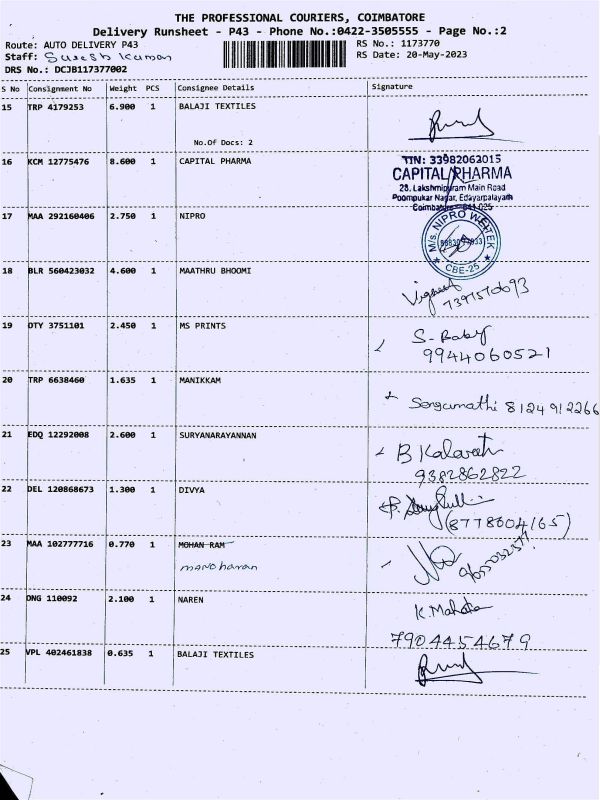 THE PROFESSIONAL COURIERS, COIMBATORE
Delivery Runsheet - P43 - Phone No.:0422-3505555 - Page No.:2
Route: AUTO DELIVERY P43
RS No.: 1173770
Staff: Suresh Kumar
RS Date: 20-May-2023
DRS No.: DCJB117377002
S No Consignment No Weight PCS Consignee Details Signature
15 TRP 4179253 6.900 1 BALAJI TEXTILES
No.Of Docs: 2
16 KCM 12775476 8.600 1 CAPITAL PHARMA
TIN: 33982063015
CAPITAL PHARMA
28, Lakshmipuram Main Road
Poompukar Nagar, Edayarpalayam
Coimbatore - 641 025
17 MAA 292160406 2.750 1 NIPRO
M/S. NIPRO WELTEK
CBE-25
18 BLR 560423032 4.600 1 MAATHRU BHOOMI
Vignesh
7397570693
19 OTY 3751101 2.450 1 MS PRINTS
S. Baby
9944060521
20 TRP 6638460 1.635 1 MANIKKAM
8124912266
21 EDQ 12292008 2.600 1 SURYANARAYANNAN
B Kalavathi
9382862822
22 DEL 120868673 1.300 1 DIVYA
(8778604165)
23 MAA 102777716 0.770 1 MOHAN RAM
manoharan
24 DNG 110092 2.100 1 NAREN
K. Mahata
7904454679
25 VPL 402461838 0.635 1 BALAJI TEXTILES